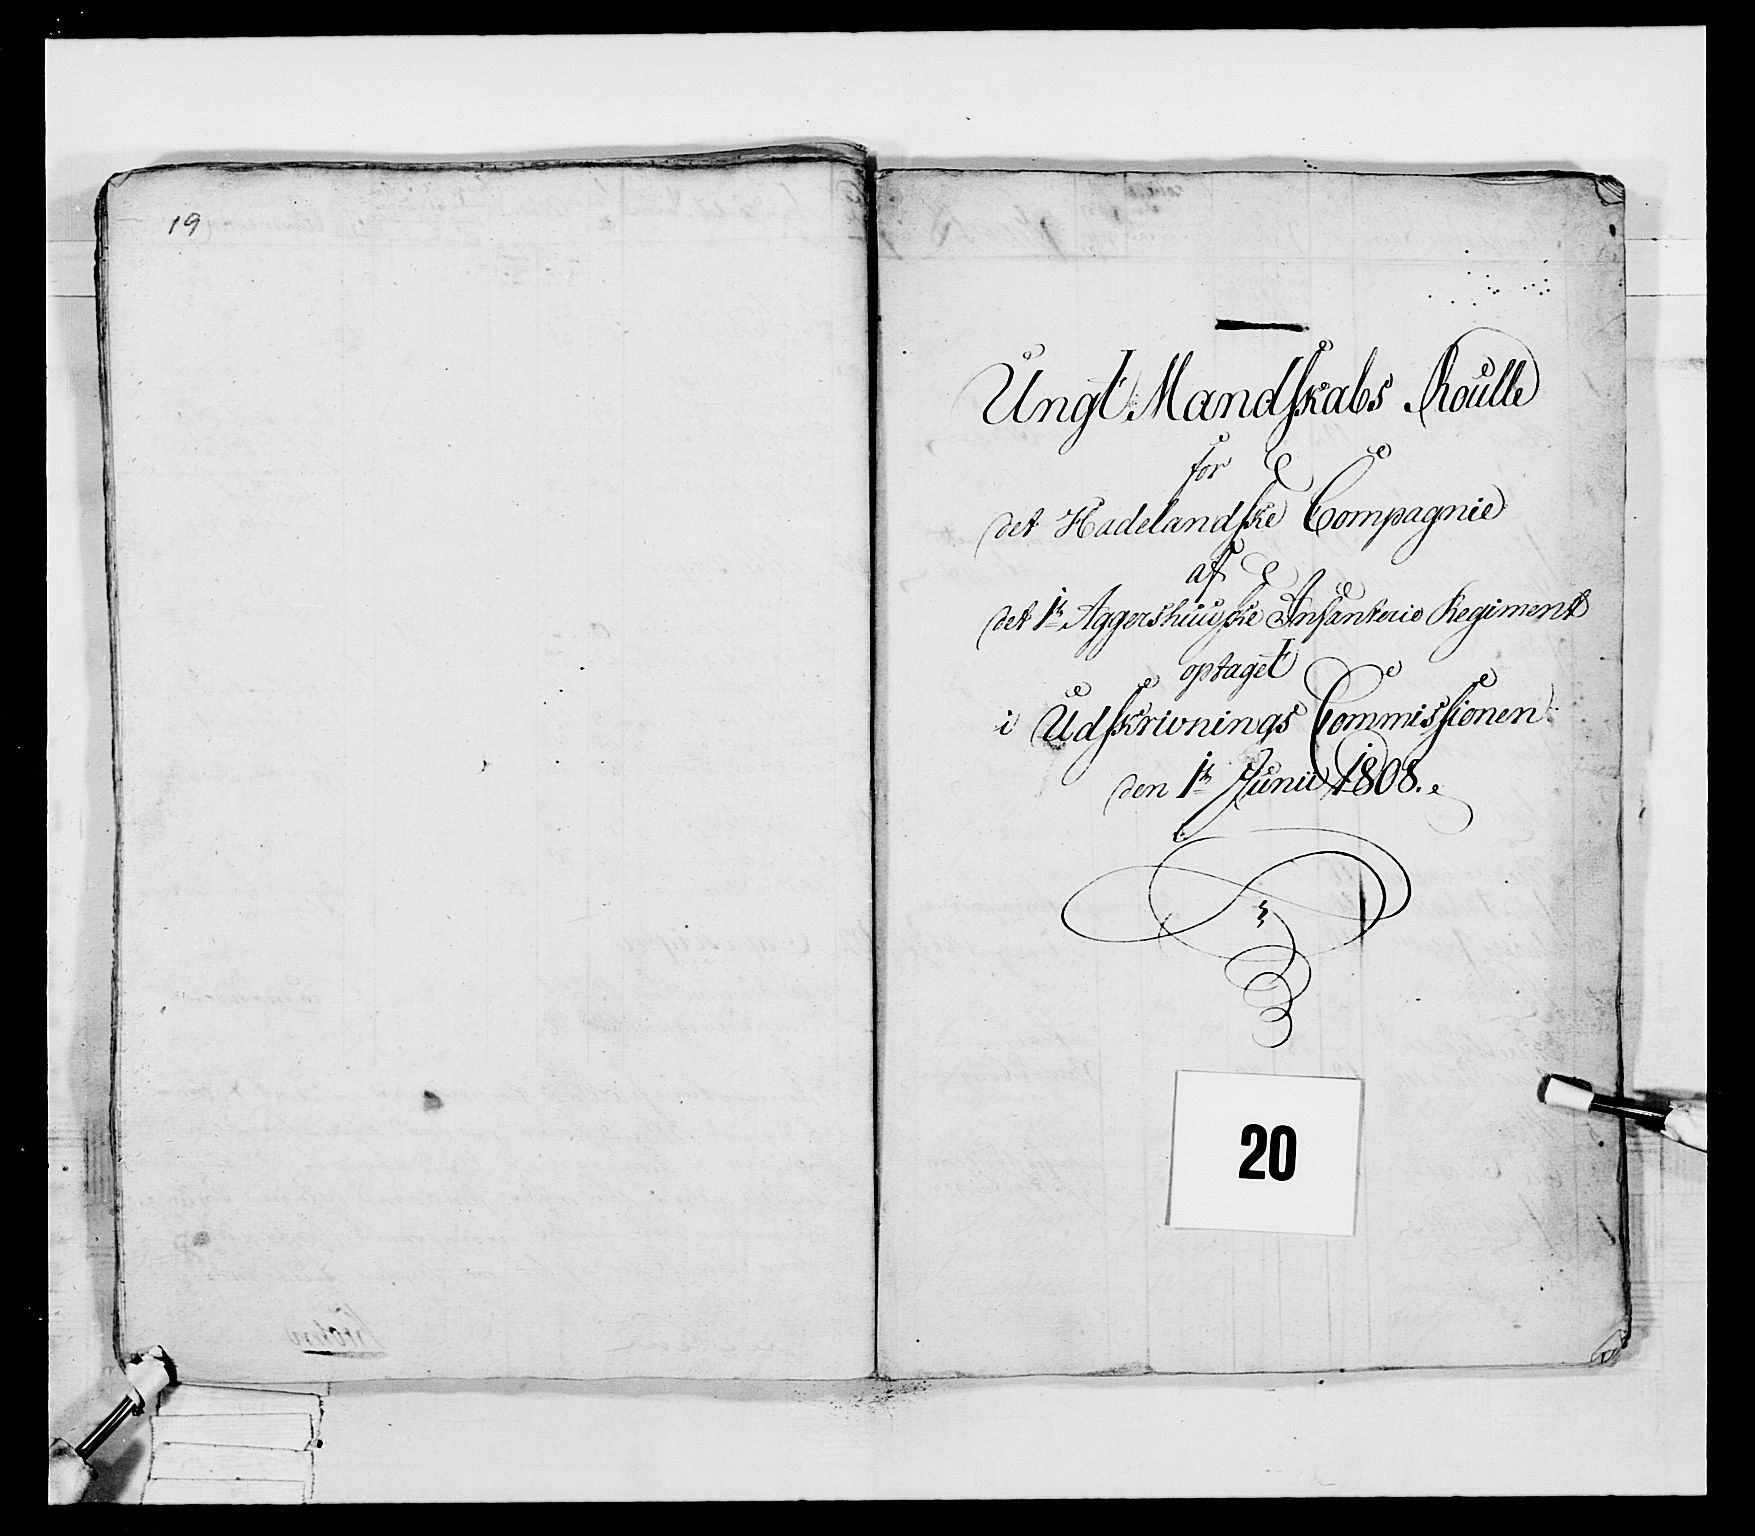 19
Ungt Mandskabs Roulle
for
det Hadelandske Compagnie
af
det 1te Aggershuusske Infanterie Regiment
optaget
i Udskrivnings Commissionen
den 1te Junii 1808.
20